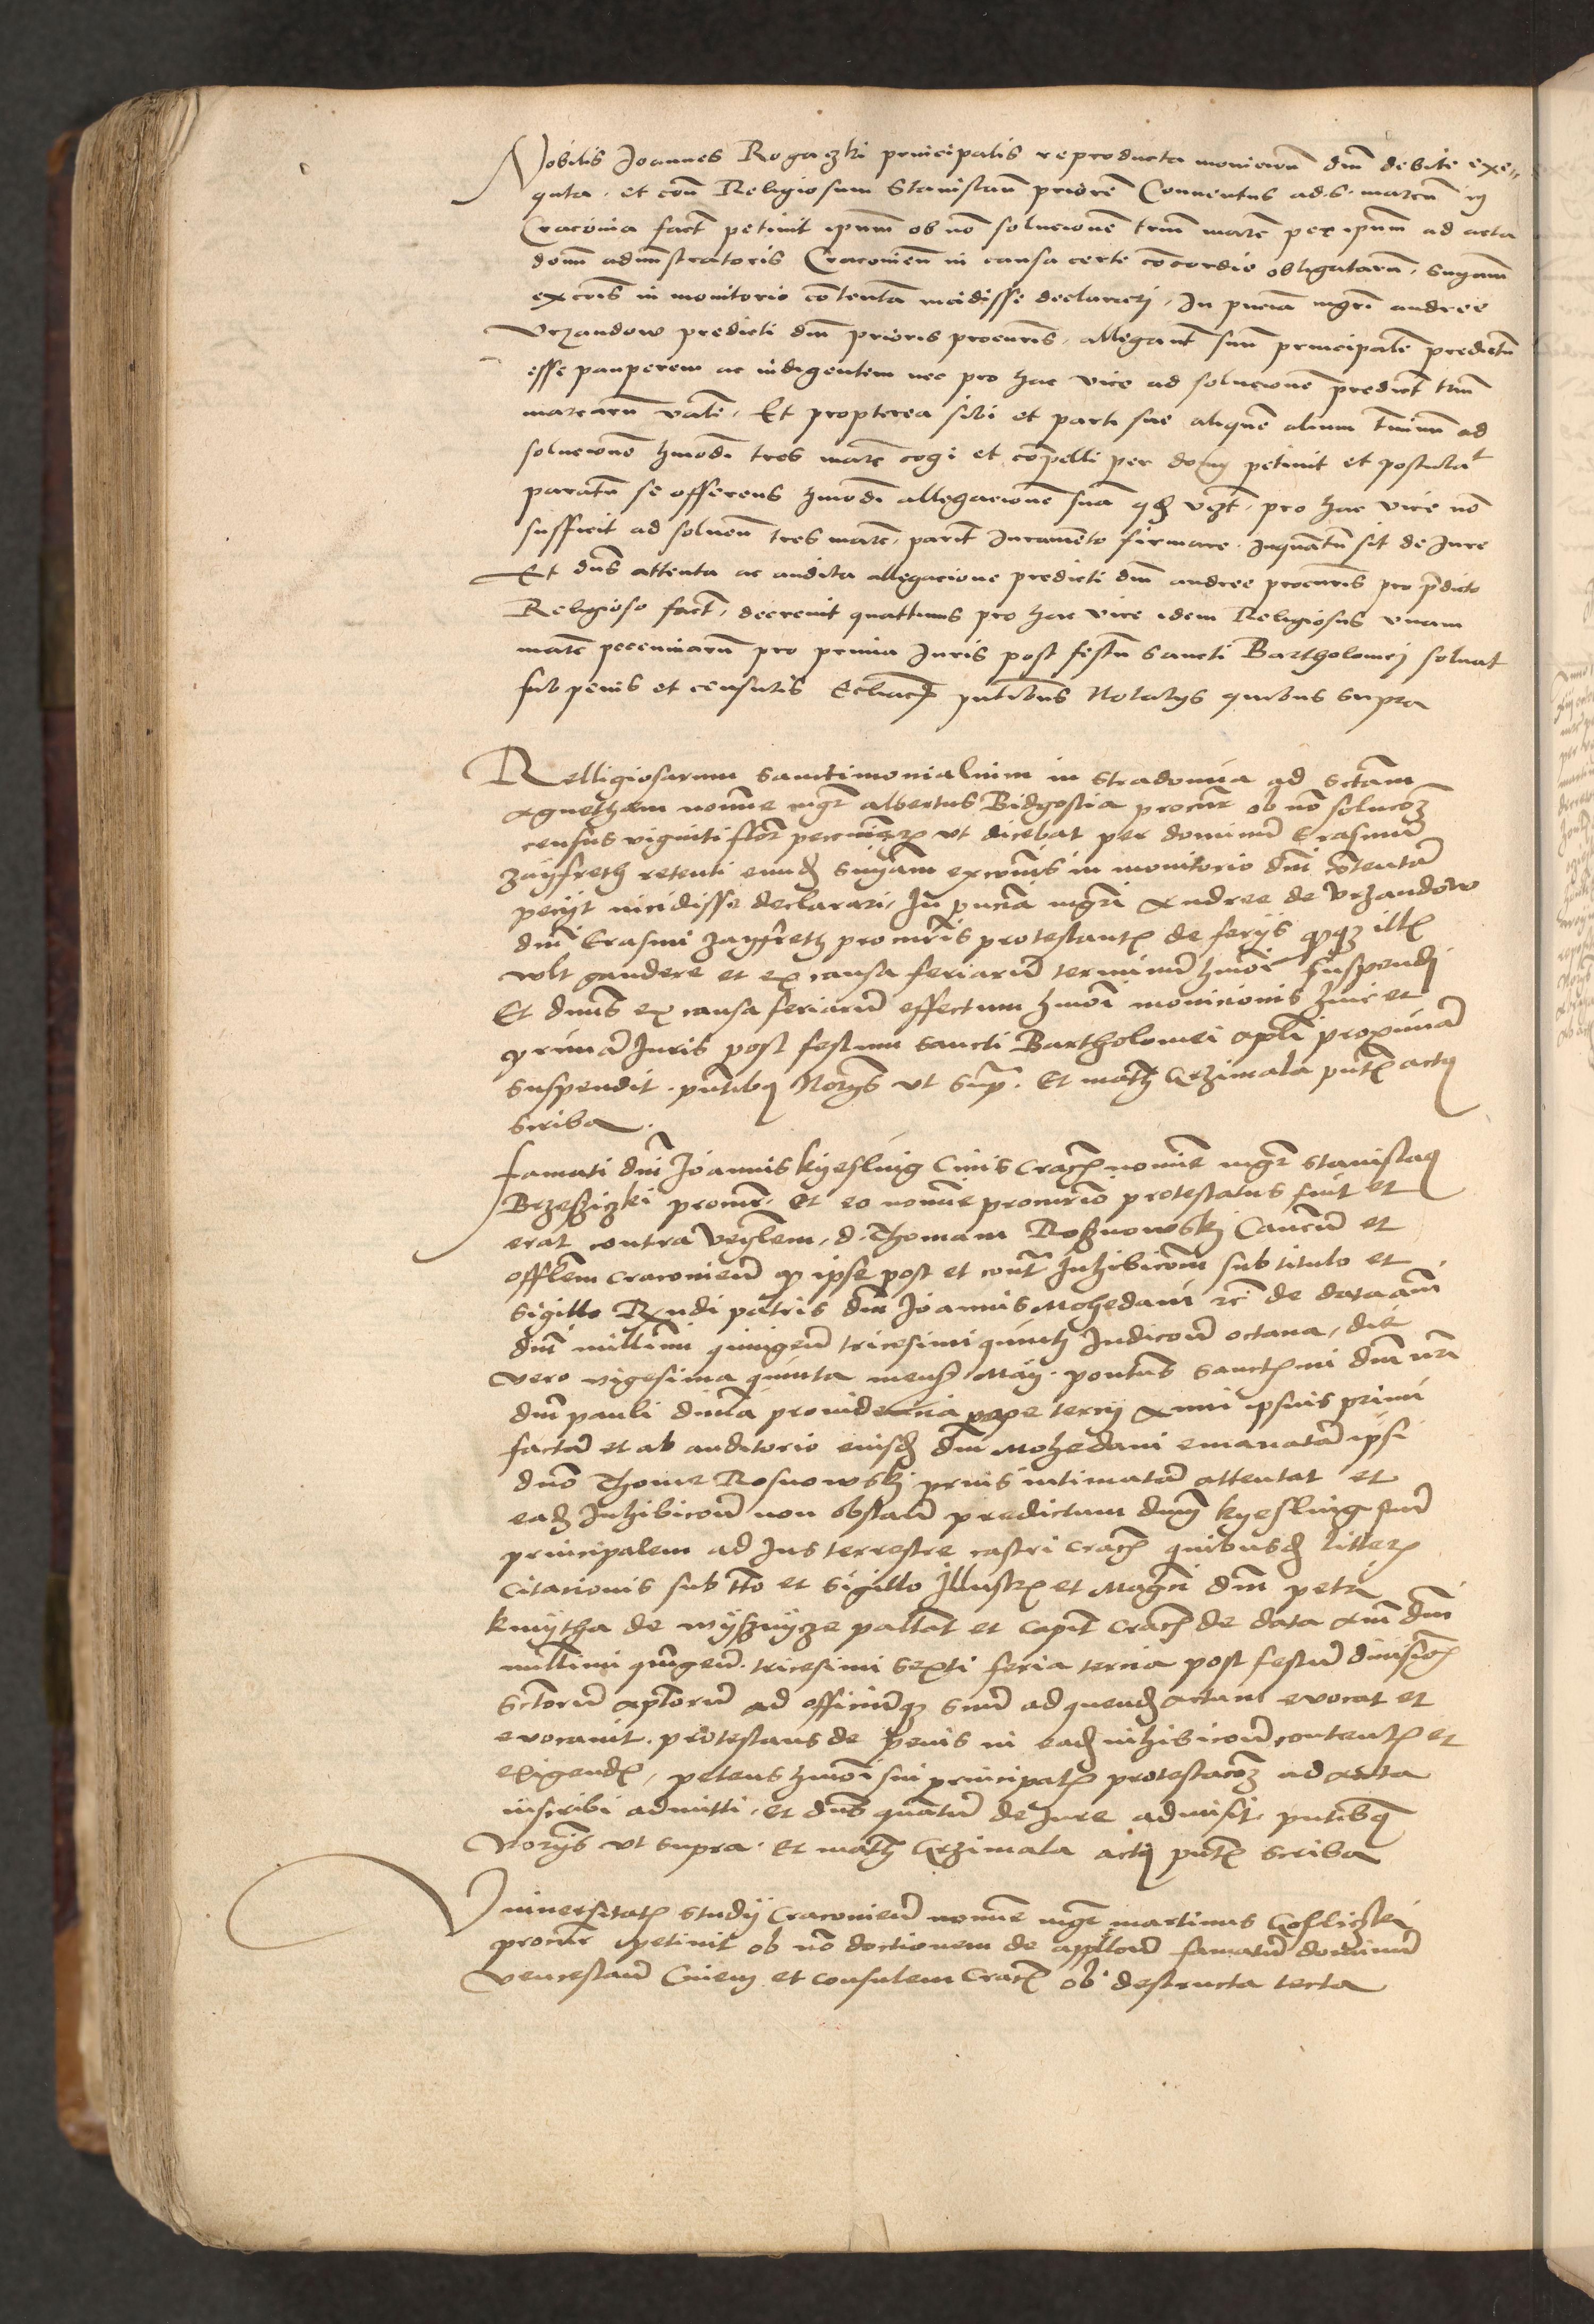 Nobilis Joannes Rogaczki principalis reproducta monicioñ dñi debite exe-
quta, et coñ Religiosum Stanislaũ priorẽ Conventus ad s. marcũ in
Cracovia fact̃ petivit ipsum ob nõ solucionẽ triũ marc̃ per ipsum ad acta
domĩ administratoris Cracovieñ in causa certe cõcordie obligatarũ, snĩam
excoĩs in monitorio cõtentam incidisse declarari, In pñcia mgr̃i andree
Vrzandow predicti dñi prioris procur̃is, allegant̃ suũ principalẽ predictũ
esse pauperem ac indigentem nec pro hac vice ad solucionẽ predict̃ triũ
marcarũ valẽ, Et propterea sibi et parti sue aliquẽ alium tĩnum ad
solucionẽ hmõdi tres marc̃ cogi et cõpelli per dom̃ petivit et postulat
paratũ se offerens hmõdi allegacionẽ suã qd vz̃t, pro hac vice nõ
sufficit ad solueñ tres marc̃, parit̃ Juramento firmare, inquãtũ sit de Jure
Et dñs attenta ac audita allegacione predicti dñi andree procur̃is pro p̃dicto
Religioso fact̃, decrevit quattinus pro hac vice idem Religiosus unam
marc̃ pecuniarũ pro prima Juris post festũ Sancti Bartholomei soluat
sub penis et censuris Ecl̃iacis pñtibus Notarys quibus supra
Relligiosarum Sanctimonialium in Stradomia ad Sctam
Agnetham nomine mgr̃ albertus Bidgostia procur̃ ob nõ solucoẽ
census viginti flor̃ pecuniar̃ ut dicebat per dominũ Erasmũ
Zayfreth retenti eund̃ snĩam excoĩs in monitorio dñi cõtentã
peciyt incidisse declarari, In pñcia mgr̃i Andree de Vrzandow
dñi Erasmi Zayfreth procur̃is protestant̃ de ferys quibus ill̃
vult gaudere et ex causa feriarũ terminũ hmõi suspendi
Et dñus ex causa feriarũ effectum hmõi monicionis huic et
primã Juris post festum Sancti Bartholomei apl̃i proximã
suspendit. pñtibq Nor̃ys ut sup̃. Et math̃ Grzimala pñt̃ actq
scriba.
famati dñi Joannis kyesling Civis Crac̃ nomine mgr̃ Stanislaq
Brzeszizki procur̃. Et eo nomine procur̃io protestatus fuit et
erat contra ven̄lem, d. Thomam Rosznowskj Canc̃ũ et
offl̃em cracovieñ qd ipse post et cont̃ Inhibicoñ sub titulo et
Sigillo Rndi patris dñi Joannis Mohedani rc̃ de data añi
dñi millimi quingeñ tricesimi quinti Indicoñ octaua, die
vero vigesima quinta mens̃ May. pontũs Sanctmi dñi nr̃i
dñi pauli divĩa providencia pape tercij Anni ipsius primi
factã et ab auditorio eiusd̃ dñi Mohedani emanatã ipsi
dño Thome Rosnowskj prius intimatã attentat et
ead̃ Inhibicoñ non obstañ predictum dñum kyesling suũ
principalem ad Jus terrestre castri Crac̃ quibusd̃ litter̃
Citacionis sub tt̃o et Sigillo Illustr̃ et Magci dñi petri
kmytha de wysznycze pallat̃ et capit̃ Crac̃ de data Añi dñi
millimi quingeñ. tricesimi sexti feria tercia post festũ divisiõ
Sctorũ Aptorũ ad officiũqz suũ ad quend̃ actum evocat et
evocavit. protestans de penis in ead̃ inhibicoñ content̃ et
exigend̃, petens hmõi sui principal̃ protestacoẽ ad Acta
inscribi admitti, et dñs quantũ de Jure admisit. pñtibq
Nor̃ys ut supra. Et math̃ Grzimala actq pñt̃ scriba
Vniversitat̃ Studij Cracovieñ nomine mgr̃ martinus Gosliczki
procur̃ petivit ob nõ doctionem de appl̃oñ famatũ dominũ
venceslaũ Civem et consulem Crac̃ ob destructa tecta